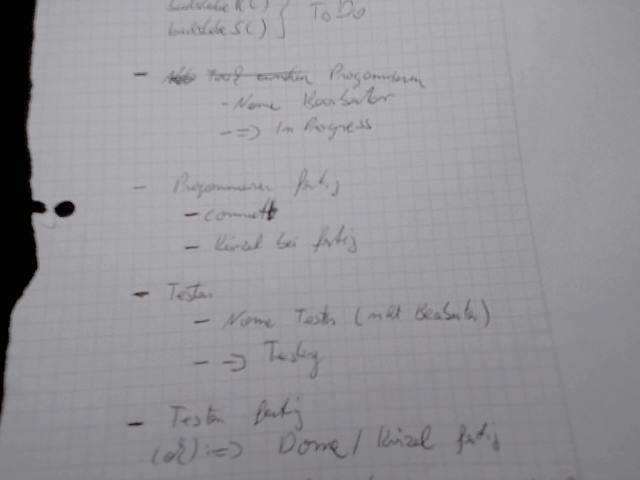 buchstabe R( )
buchstabe S( ) } To Do
- Programmieren
- Name Bearbeiter
- => In Progress
- Programmieren fertig
- commit
- Kürzel bei fertig
- Testen
- Name Tester (nicht Bearbeiter)
- => Testing
- Testen fertig
(ok) :=> Done / Kürzel fertig